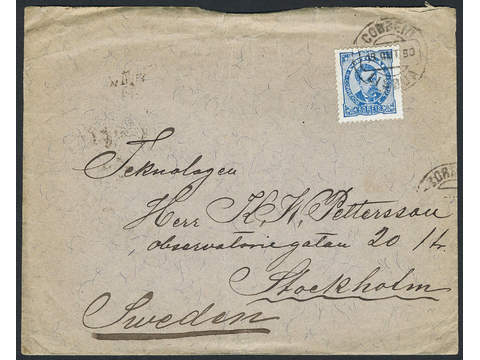 CORREIO
Teknologen
Herr K. K. Pettersson
observatoriegatan 20 1 tr.
Stockholm
Sweden